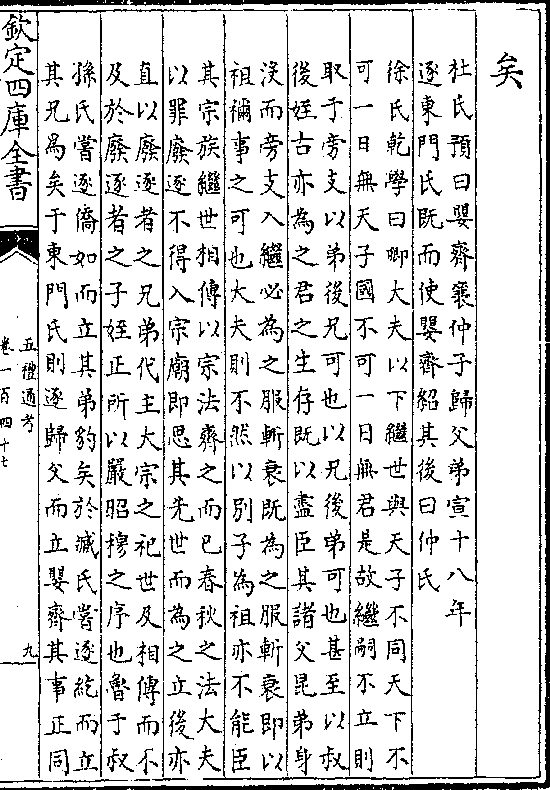 矣
杜氏預曰嬰齊襄仲子歸父弟宣十八年
逐東門氏既而使嬰齊紹其後曰仲氏
徐氏乾學曰卿大夫以下繼世與天子不同天下不
可一日無天子國不可一日無君是故繼嗣不立則
取于旁支以弟後兄可也以兄後弟可也甚至以叔
後姪古亦為之君之生存既以盡臣其諸父昆弟身
沒而旁支入繼必為之服斬衰既為之服斬衰即以
祖禰事之可也大夫則不然以別子為祖亦不能臣
其宗族繼世相傳以宗法齊之而已春秋之法大夫
以罪廢逐不得入宗廟即思其先世而為之立後亦
直以廢逐者之兄弟代主大宗之祀世及相傳而不
及於廢逐者之子姪正所以嚴昭穆之序也魯于叔
孫氏嘗逐僑如而立其弟豹矣於臧氏嘗逐紇而立
其兄為矣于東門氏則逐歸父而立嬰齊其事正同
欽定四庫全書
五禮通考
卷一百四十七
九